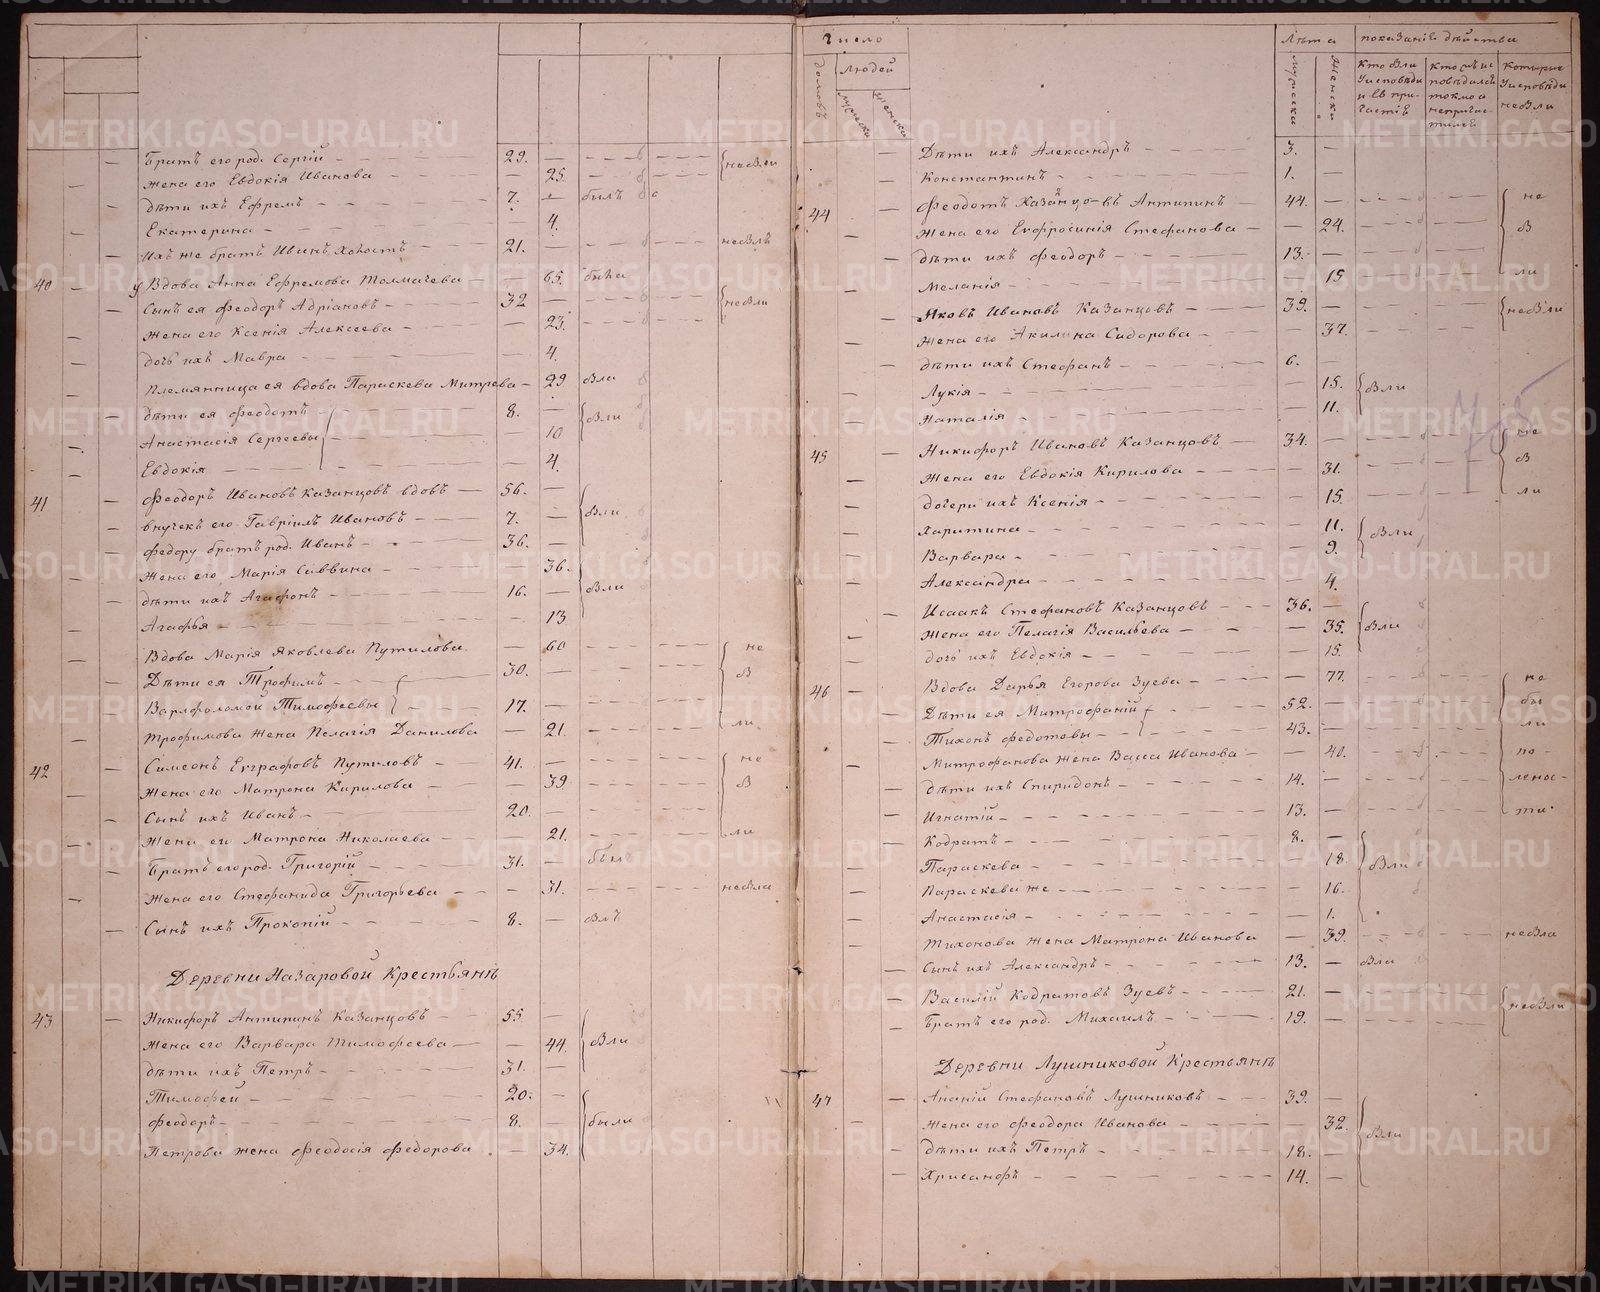 Братъ его род. Сергій 29. небыли
Жена его Евдокія Иванова 25.
Дѣти ихъ Ефремъ 7. былъ
Екатерина 4.
Ихъ же братъ Иванъ Холостъ 21. небылъ
40 у Вдова Анна Ефремова Толмачева 65. была
Сынъ ея Феодоръ Адріановъ 32 небыли
Жена его Ксенія Алексеева 23.
дочь ихъ Мавра 4.
Племянница ея вдова Параскева Митрева 29 была
дѣти ея Феодотъ 8. были
Анастасія Сергеевы 10
Евдокія 4.
41 Феодоръ Ивановъ Казанцовъ вдовъ 56. были
внучекъ его Гавріилъ Ивановъ 7.
Федору братъ род. Иванъ 36.
Жена его Марія Саввина 36.
дѣти ихъ Агафонъ 16. были
Агафья 13
Вдова Марія Яковлева Путилова 60 не
Дѣти ея Трофимъ 30. б
Варлфоломой Тимофеевы 17.
Трофимова жена Пелагія Данилова 21. ли
42 Симеонъ Евграфовъ Путиловъ 41. не
Жена его Матрона Кирилова 39 б
Сынъ ихъ Иванъ 20.
Жена его Матрона Николаева 21. ли
Братъ его род. Григорій 31. былъ
Жена его Стефанида Григорьева 31. небыла
Сынъ ихъ Прокопій 8. былъ
Деревни Назаровой Крестьянъ
43 Никифоръ Антипинъ Казанцовъ 55.
Жена его Варвара Тимофеева 44. были
дѣти ихъ Петръ 31.
Тимофеи 20.
Феодоръ 8. были
Петрова жена Феодосія Федорова 34.
Число
Лѣта
показаніе дѣйства
домовъ
людей
мужеска
женска
мужеска
женска
Кто были
у исповѣди
и св. при-
частіе
кто исповѣдался
токмо а
непричас-
тился
которые
у исповѣди
небыли
Дѣти ихъ Александръ 3.
Константинъ 1.
44 Феодотъ Казанцовъ Антипинъ 44. не
Жена его Евфросинія Стефанова 24. б
дѣти ихъ Феодоръ 13.
Меланія 15 ли
Яковъ Ивановъ Казанцовъ 39. небыли
Жена его Акилина Сидорова 37.
дѣти ихъ Стефанъ 6.
Лукія 15. были
Наталія 11.
45 Никифоръ Ивановъ Казанцовъ 34. не
Жена его Евдокія Кирилова 31. б
дочери ихъ Ксенія 15. ли
Харитина 11. были
Варвара 9.
Александра 4.
Исаакъ Стефановъ Казанцовъ 36.
Жена его Пелагія Васильева 35. были
дочь ихъ Евдокія 15.
46 Вдова Дарья Егорова Зуева 77. не
Дѣти ея Митрофаній 52. бы
Тихонъ Федотовы 43. ли
Митрофанова жена Васса Иванова 40. по-
дѣти ихъ Спиридонъ 14. ленос-
Игнатій 13. ти.
Кодратъ 8.
Параскева 18. были
Параскева же 16.
Анастасія 1.
Тихонова жена Матрона Иванова 39. небыла
Сынъ ихъ Александръ 13. были
Василій Кодратовъ Зуевъ 21. небыли
Братъ его род. Михаилъ 19.
Деревни Лушниковой Крестьянъ
47 Ананій Стефановъ Лушниковъ 39.
Жена его Феодора Иванова 32. были
дѣти ихъ Петръ 18.
Хрисанфъ 14.
METRIKI.GASO-URAL.RU